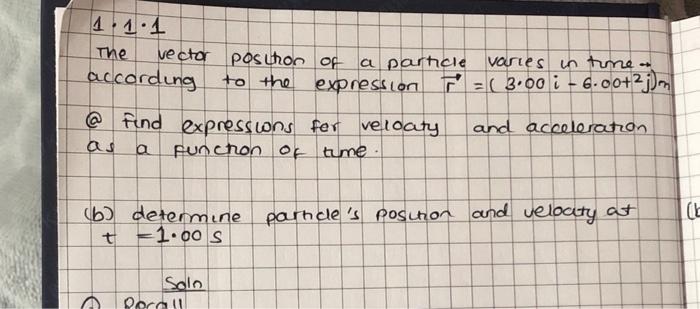 1.1.1
The vector position of a particle varies in time →
according to the expression r⃗ = (3.00 i - 6.00t²j)m
ⓐ find expressions for velocity and acceleration
as a function of time.
(b) determine particle's position and velocity at
t = 1.00 s
Soln
Recall